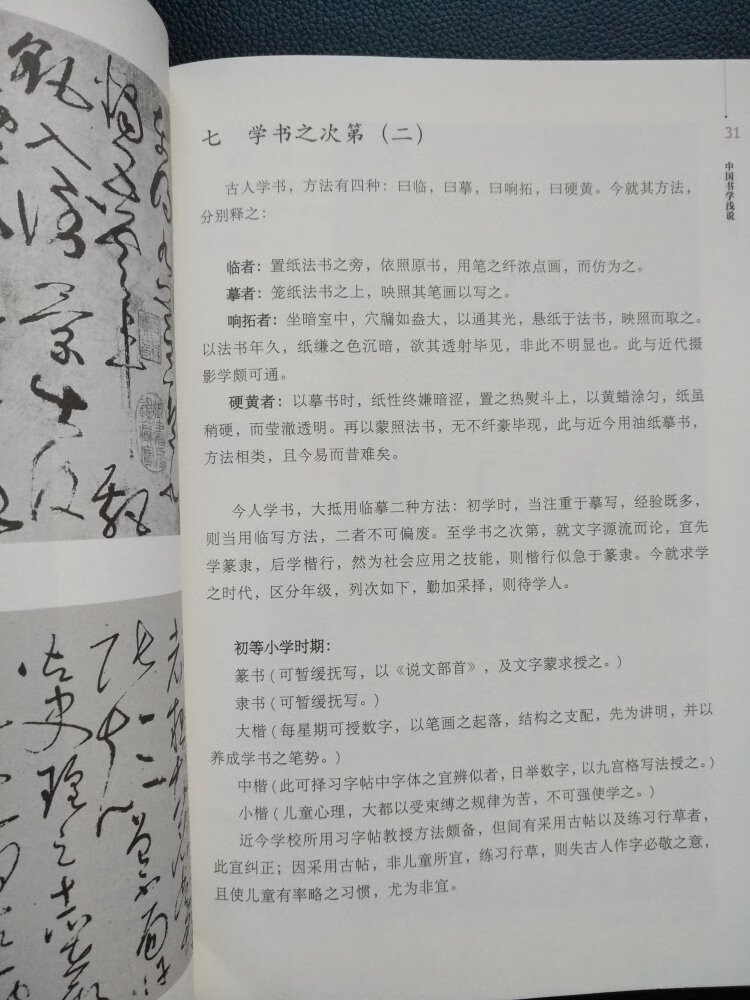 七 学书之次第（二）
31
中国书学浅说
古人学书，方法有四种：曰临，曰摹，曰响拓，曰硬黄。今就其方法，
分别释之：
临者：置纸法书之旁，依照原书，用笔之纤浓点画，而仿为之。
摹者：笼纸法书之上，映照其笔画以写之。
响拓者：坐暗室中，穴牖如盎大，以通其光，悬纸于法书，映照而取之。
以法书年久，纸缣之色沉暗，欲其透射毕见，非此不明显也。此与近代摄
影学颇可通。
硬黄者：以摹书时，纸性终嫌暗涩，置之热熨斗上，以黄蜡涂匀，纸虽
稍硬，而莹澈透明。再以蒙照法书，无不纤豪毕现，此与近今用油纸摹书，
方法相类，且今易而昔难矣。
今人学书，大抵用临摹二种方法：初学时，当注重于摹写，经验既多，
则当用临写方法，二者不可偏废。至学书之次第，就文字源流而论，宜先
学篆隶，后学楷行，然为社会应用之技能，则楷行似急于篆隶。今就求学
之时代，区分年级，列次如下，勤加采择，则待学人。
初等小学时期：
篆书（可暂缓抚写，以《说文部首》，及文字蒙求授之。）
隶书（可暂缓抚写。）
大楷（每星期可授数字，以笔画之起落，结构之支配，先为讲明，并以
养成学书之笔势。）
中楷（此可择习字帖中字体之宜辨似者，日举数字，以九宫格写法授之。）
小楷（儿童心理，大都以受束缚之规律为苦，不可强使学之。）
近今学校所用习字帖教授方法颇备，但间有采用古帖以及练习行草者，
此宜纠正；因采用古帖，非儿童所宜，练习行草，则失古人作字必敬之意，
且使儿童有率略之习惯，尤为非宜。